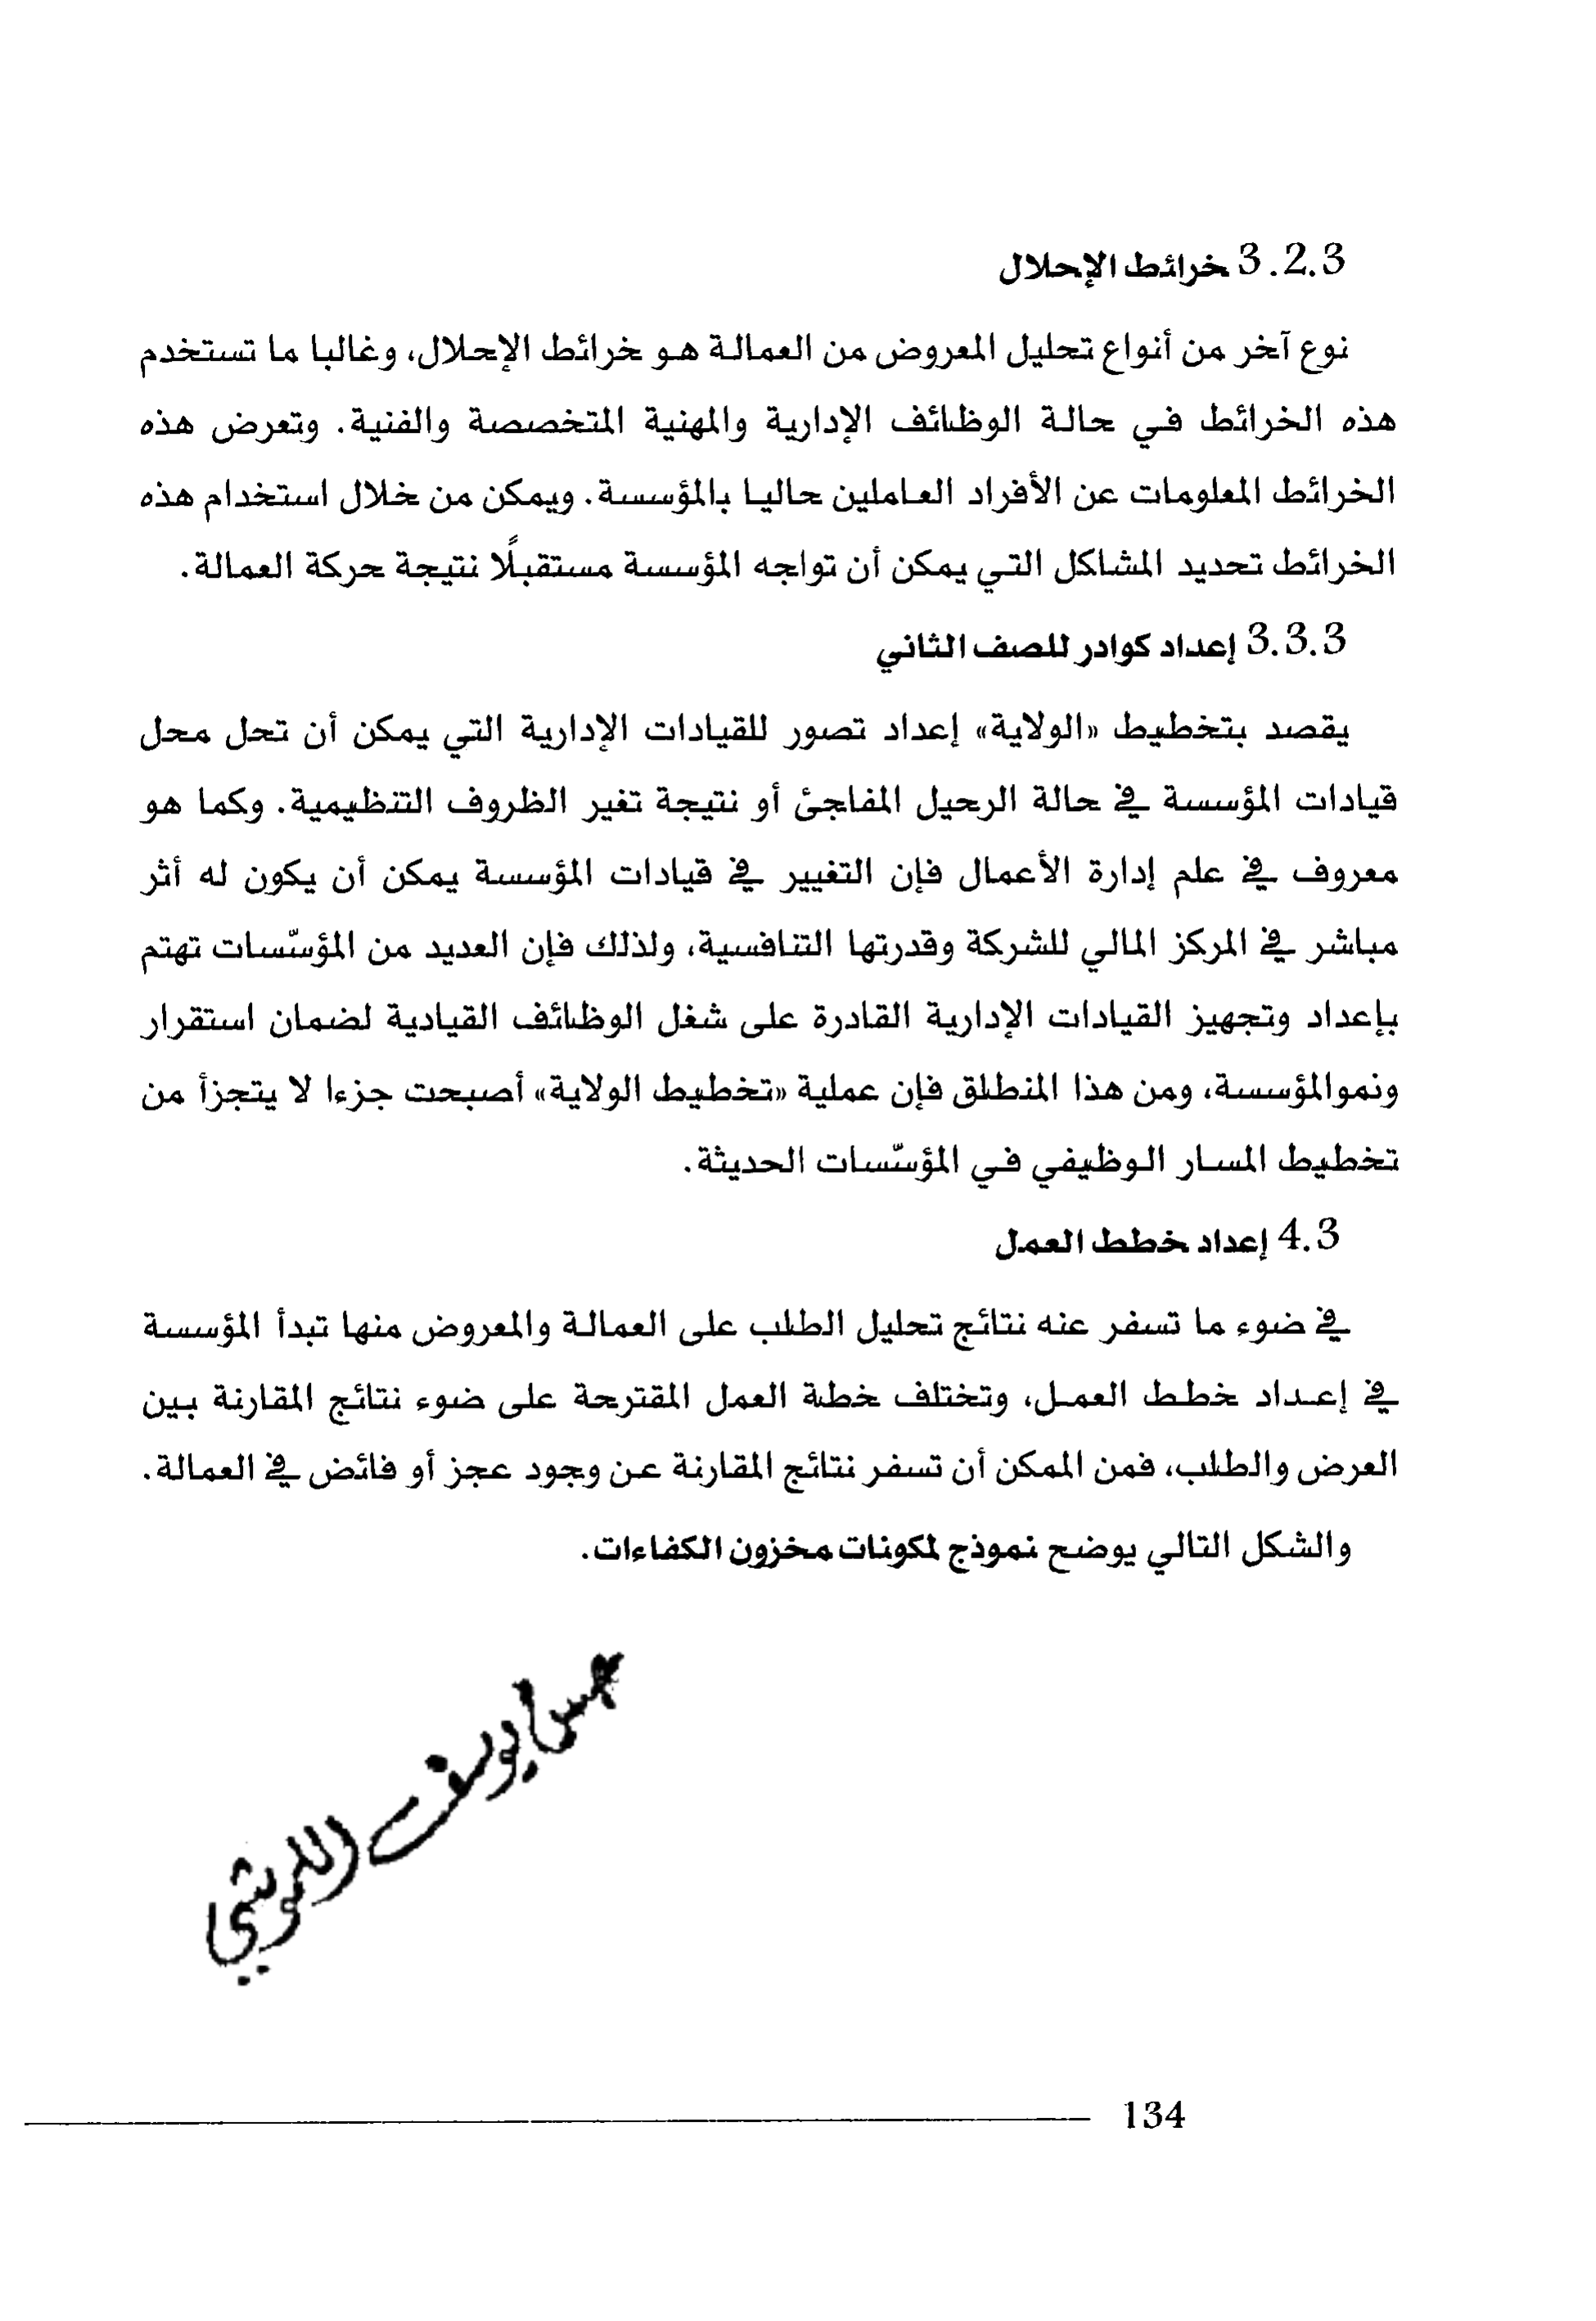 3.2.3 خرائط الإحلال
نوع آخر من أنواع تحليل المعروض من العمالة هو خرائط الإحلال، وغالبا ما تستخدم
هذه الخرائط في حالة الوظائف الإدارية والمهنية المتخصصة والفنية. وتعرض هذه
الخرائط المعلومات عن الأفراد العاملين حاليا بالمؤسسة. ويمكن من خلال استخدام هذه
الخرائط تحديد المشاكل التي يمكن أن تواجه المؤسسة مستقبلًا نتيجة حركة العمالة.
3.3.3 إعداد كوادر للصف الثاني
يقصد بتخطيط «الولاية» إعداد تصور للقيادات الإدارية التي يمكن أن تحل محل
قيادات المؤسسة في حالة الرحيل المفاجئ أو نتيجة تغير الظروف التنظيمية. وكما هو
معروف في علم إدارة الأعمال فإن التغيير في قيادات المؤسسة يمكن أن يكون له أثر
مباشر في المركز المالي للشركة وقدرتها التنافسية، ولذلك فإن العديد من المؤسّسات تهتم
بإعداد وتجهيز القيادات الإدارية القادرة على شغل الوظائف القيادية لضمان استقرار
ونموالمؤسسة، ومن هذا المنطلق فإن عملية «تخطيط الولاية» أصبحت جزءا لا يتجزأ من
تخطيط المسار الوظيفي في المؤسّسات الحديثة.
4.3 إعداد خطط العمل
في ضوء ما تسفر عنه نتائج تحليل الطلب على العمالة والمعروض منها تبدأ المؤسسة
في إعداد خطط العمل، وتختلف خطة العمل المقترحة على ضوء نتائج المقارنة بين
العرض والطلب، فمن الممكن أن تسفر نتائج المقارنة عن وجود عجز أو فائض في العمالة.
والشكل التالي يوضح نموذج لمكونات مخزون الكفاءات.
يوسف
134